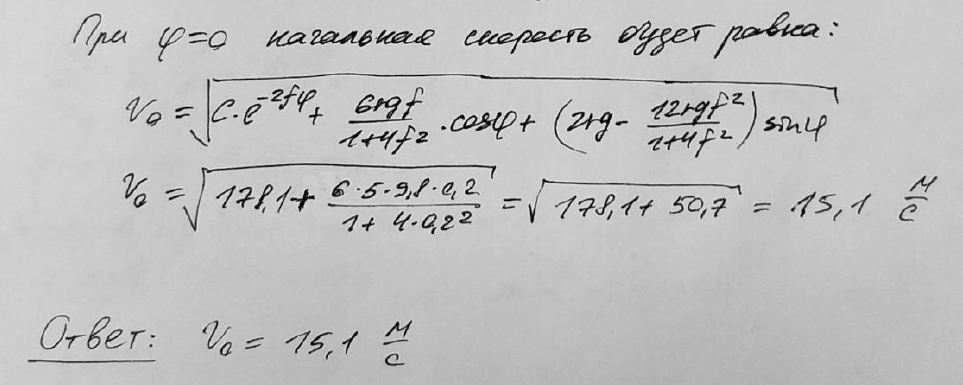 При φ=0 начальная скорость будет равна:
V₀ = √(C·e^(-2fφ) + 6rgf/(1+4f²) · cosφ + (2rg - 12rgf²/(1+4f²)) sinφ)
V₀ = √(178,1 + 6·5·9,8·0,2/(1+4·0,2²)) = √(178,1 + 50,7) = 15,1 м/с
Ответ: V₀ = 15,1 м/с